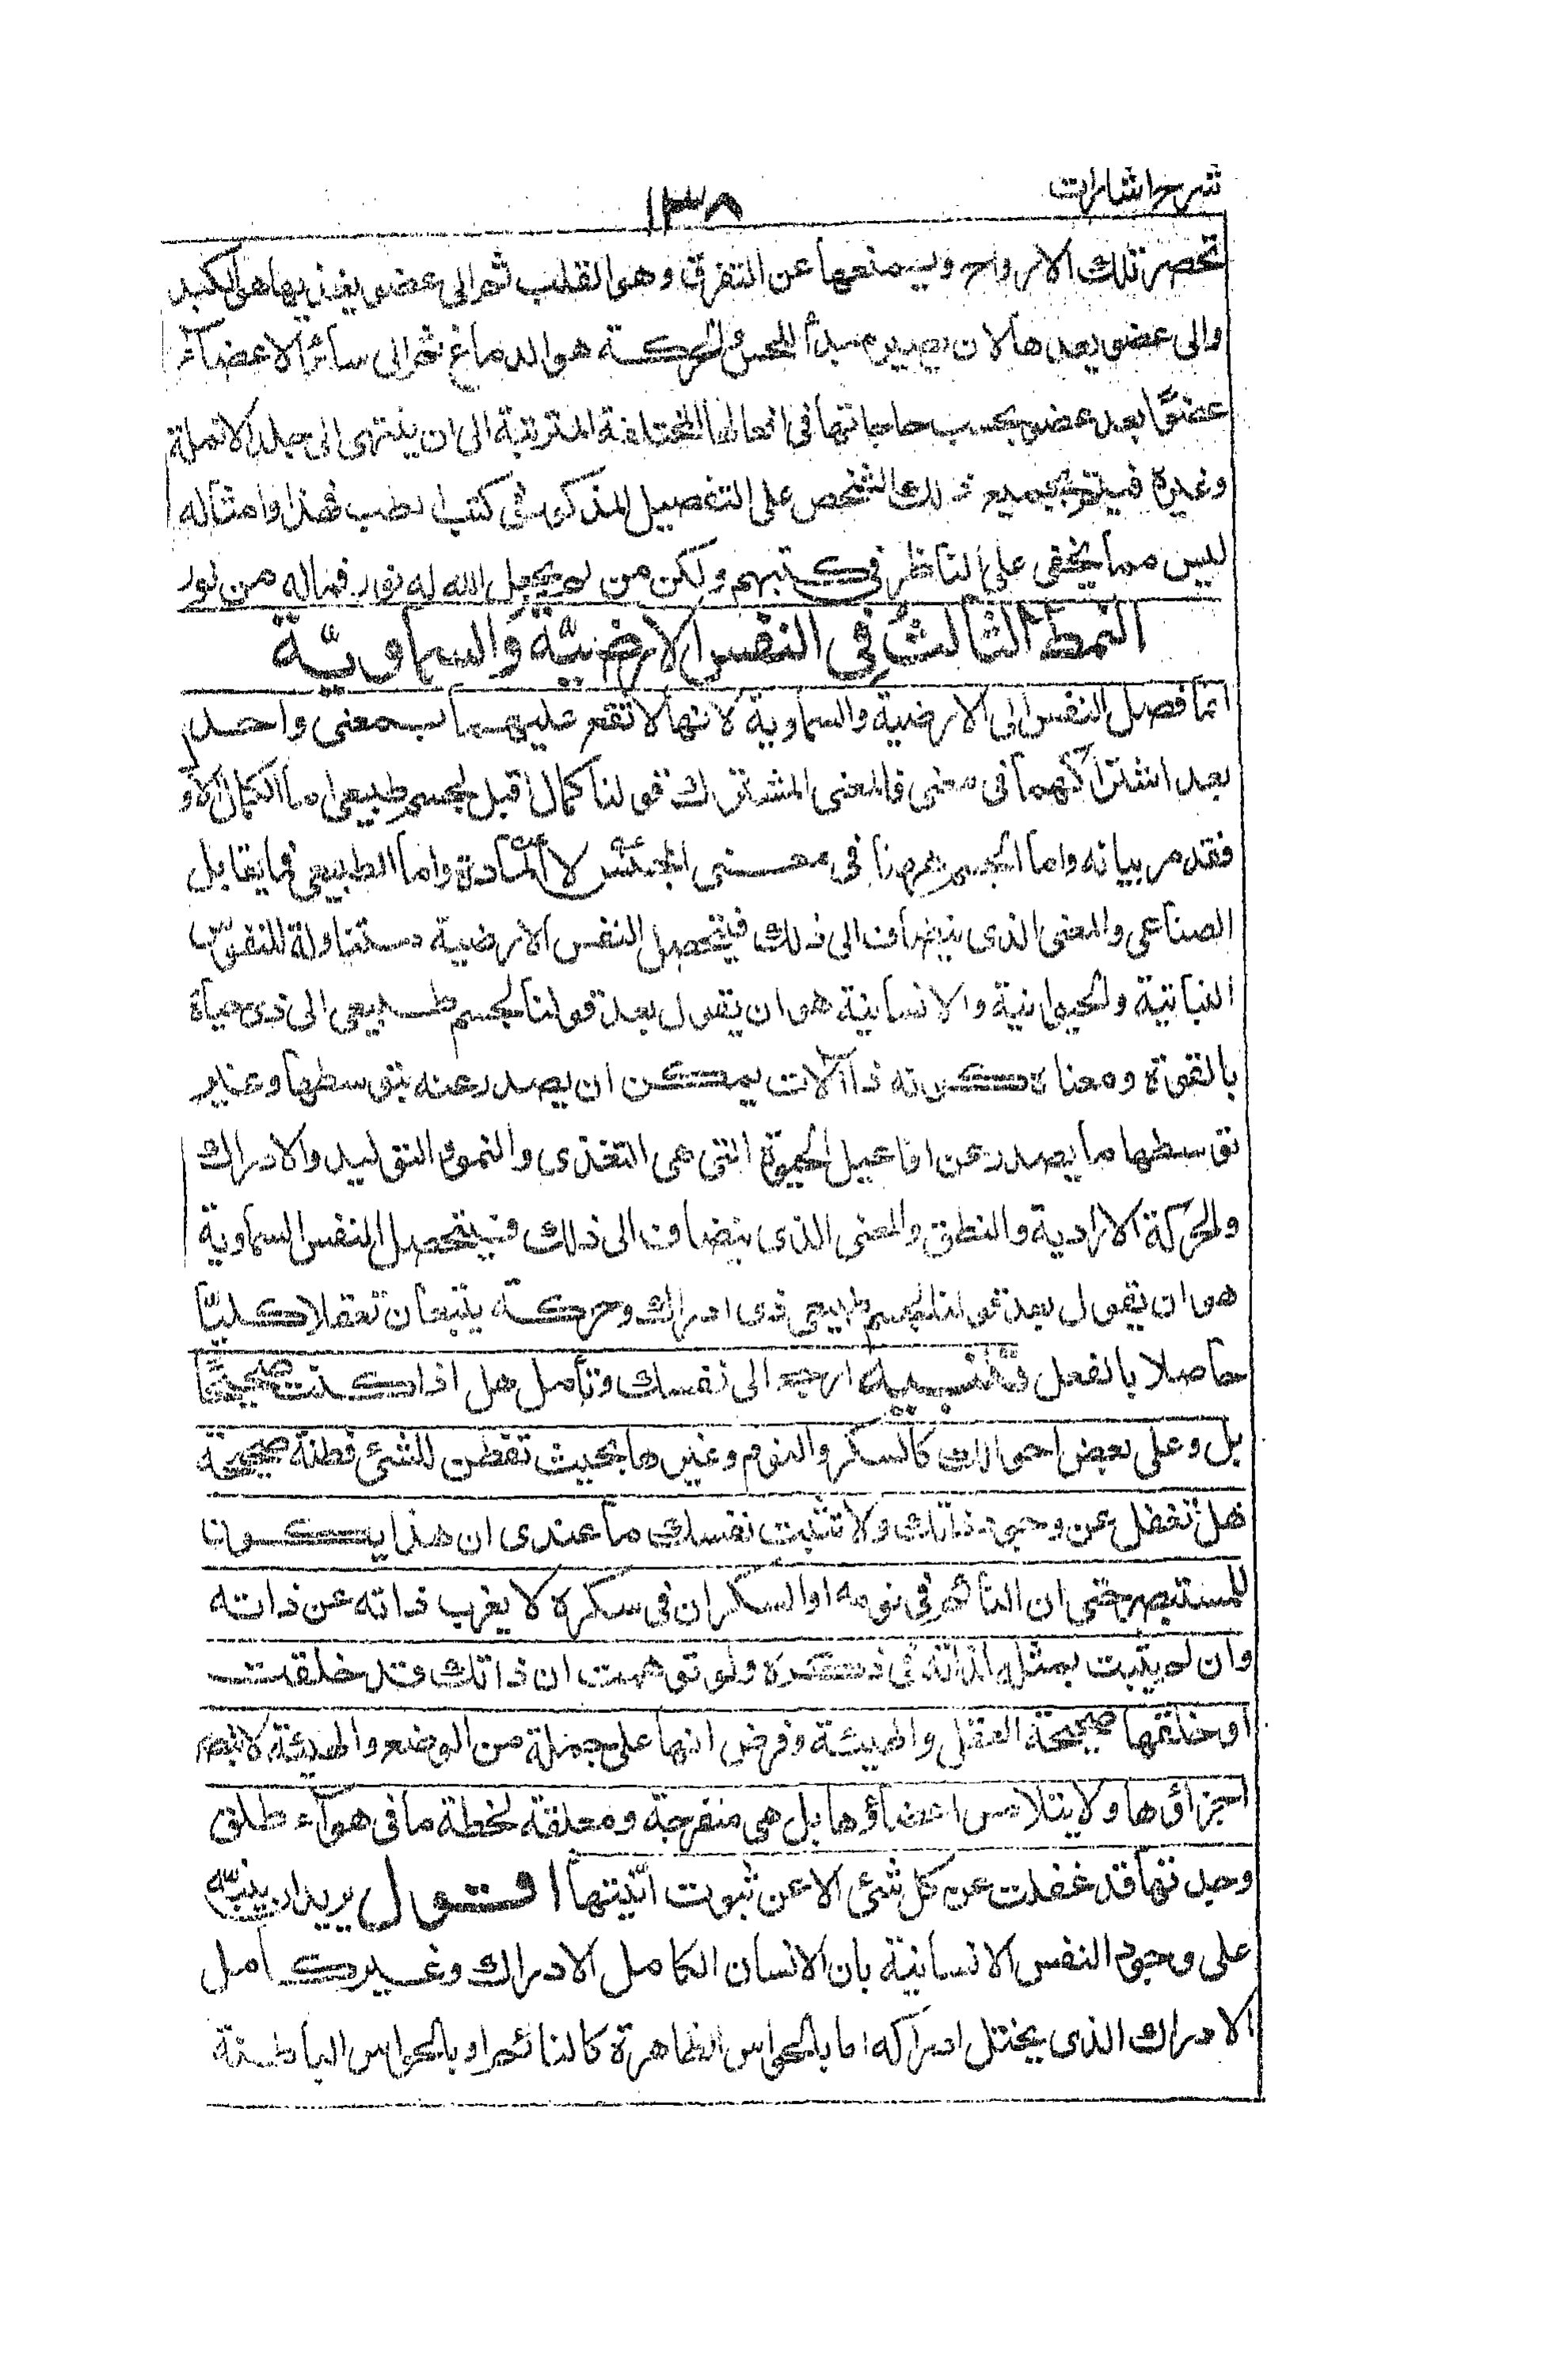 شرح اشارات
١٣٨
تحصر تلك الارواح ويمنعها عن التفرق وهو القلب ثم الى عضو يغذيها هو الكبد
والى عضو يعدها لان يصير مبدأ للحس والحركة هو الدماغ ثم الى سائر الاعضاء
عضوًا بعد عضو بحسب حاجاتها فى افعالها المختلفة المترتبة الى ان ينتهى الى جلد الانملة
وغيره فيتم بجميع ذلك الشخص على التفصيل المذكور فى كتب الطب فهذا وامثاله
ليس مما يخفى على الناظر فى كتبهم ولكن من لم يجعل الله له نورا فماله من نور
النمط الثالث فى النفس الارضيّة والسماويّة
انما فصل النفس الى الارضية والسماوية لانها لا تقع عليهما بمعنى واحد
بعد اشتراكهما فى معنى فالمعنى المشترك قولنا كمال اول لجسم طبيعى اما الكمال الاول
فقد مر بيانه واما الجسم ههنا فى معنى الجنس لا المادة واما الطبيعى فما يقابل
الصناعى والمعنى الذى ينضاف الى ذلك فيتحصل النفس الارضية متناولة للنفوس
النباتية والحيوانية والانسانية هو ان يقول بعد قولنا لجسم طبيعى الى ذى حياة
بالقوة ومعناه كونه ذا آلات يمكن ان يصدر عنه بتوسطها وغير
توسطها ما يصدر عن افاعيل الحيوة التى هى التغذى والنمو والتوليد والادراك
والحركة الارادية والنطق والمعنى الذى ينضاف الى ذلك فيتحصل النفس السماوية
هو ان يقول بعد قولنا لجسم طبيعى ذى ادراك وحركة يتبعان تعقلا كليّا
حاصلا بالفعل تنبيه ارجع الى نفسك وتأمل هل اذا كنت صحيحًا
بل وعلى بعض احوالك كالسكر والنوم وغيرها بحيث تفطن للشئ فطنة صحيحة
هل تغفل عن وجود ذاتك ولا تثبت نفسك ما عندى ان هذا يكون
للمستبصر حتى ان النائم فى نومه او السكران فى سكره لا يغرب ذاته عن ذاته
وان لم يثبت بمثله لذاته فى ذكره ولو توهمت ان ذاتك قد خلقت
او خلقها صحيحة العقل والهيئة وفرض انها على جملة من الوضع والهيئة لا تبصر
اجزاؤها ولا يتلامس اعضاؤها بل هى منفرجة ومعلقة لحظة ما فى هوآء طلق
وجدتها قد غفلت عن كل شئ الا عن ثبوت انّيتها اقول يريد ان ينبّه
على وجود النفس الانسانية بان الانسان الكامل الادراك وغير كامل
الادراك الذى يختل ادراكه اما بالحواس الظاهرة كالنائم او بالحواس الباطنة